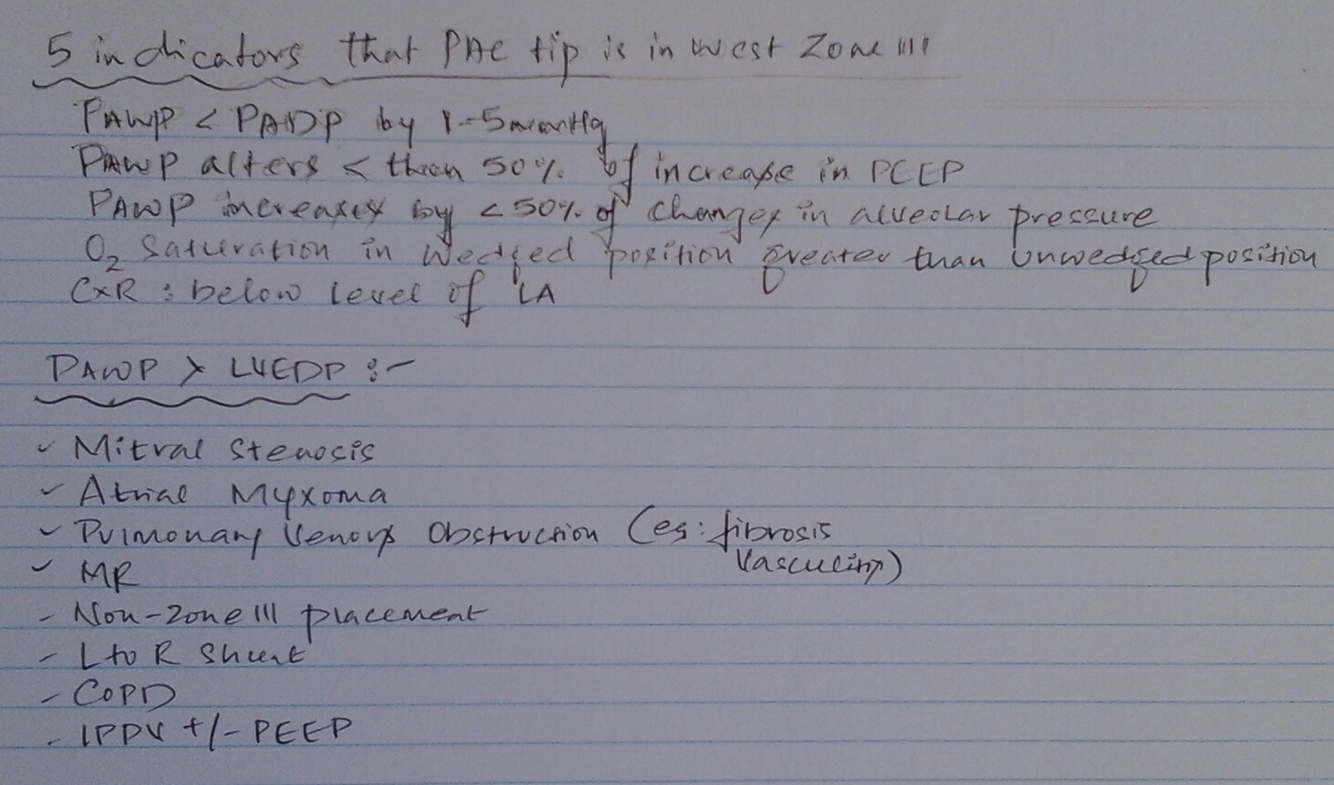 5 indicators that PAC tip is in West Zone III
PAWP < PADP by 1-5mmHg
PAWP alters < than 50% of increase in PEEP
PAWP increases by < 50% of changes in alveolar pressure
O2 Saturation in Wedged position greater than Unwedged position
CXR : below level of LA
PAWP > LVEDP :-
✓ Mitral Stenosis
✓ Atrial Myxoma
✓ Pulmonary Venous Obstruction (eg: fibrosis
Vasculitis)
✓ MR
- Non-Zone III placement
- L to R Shunt
- COPD
- IPPV +/- PEEP